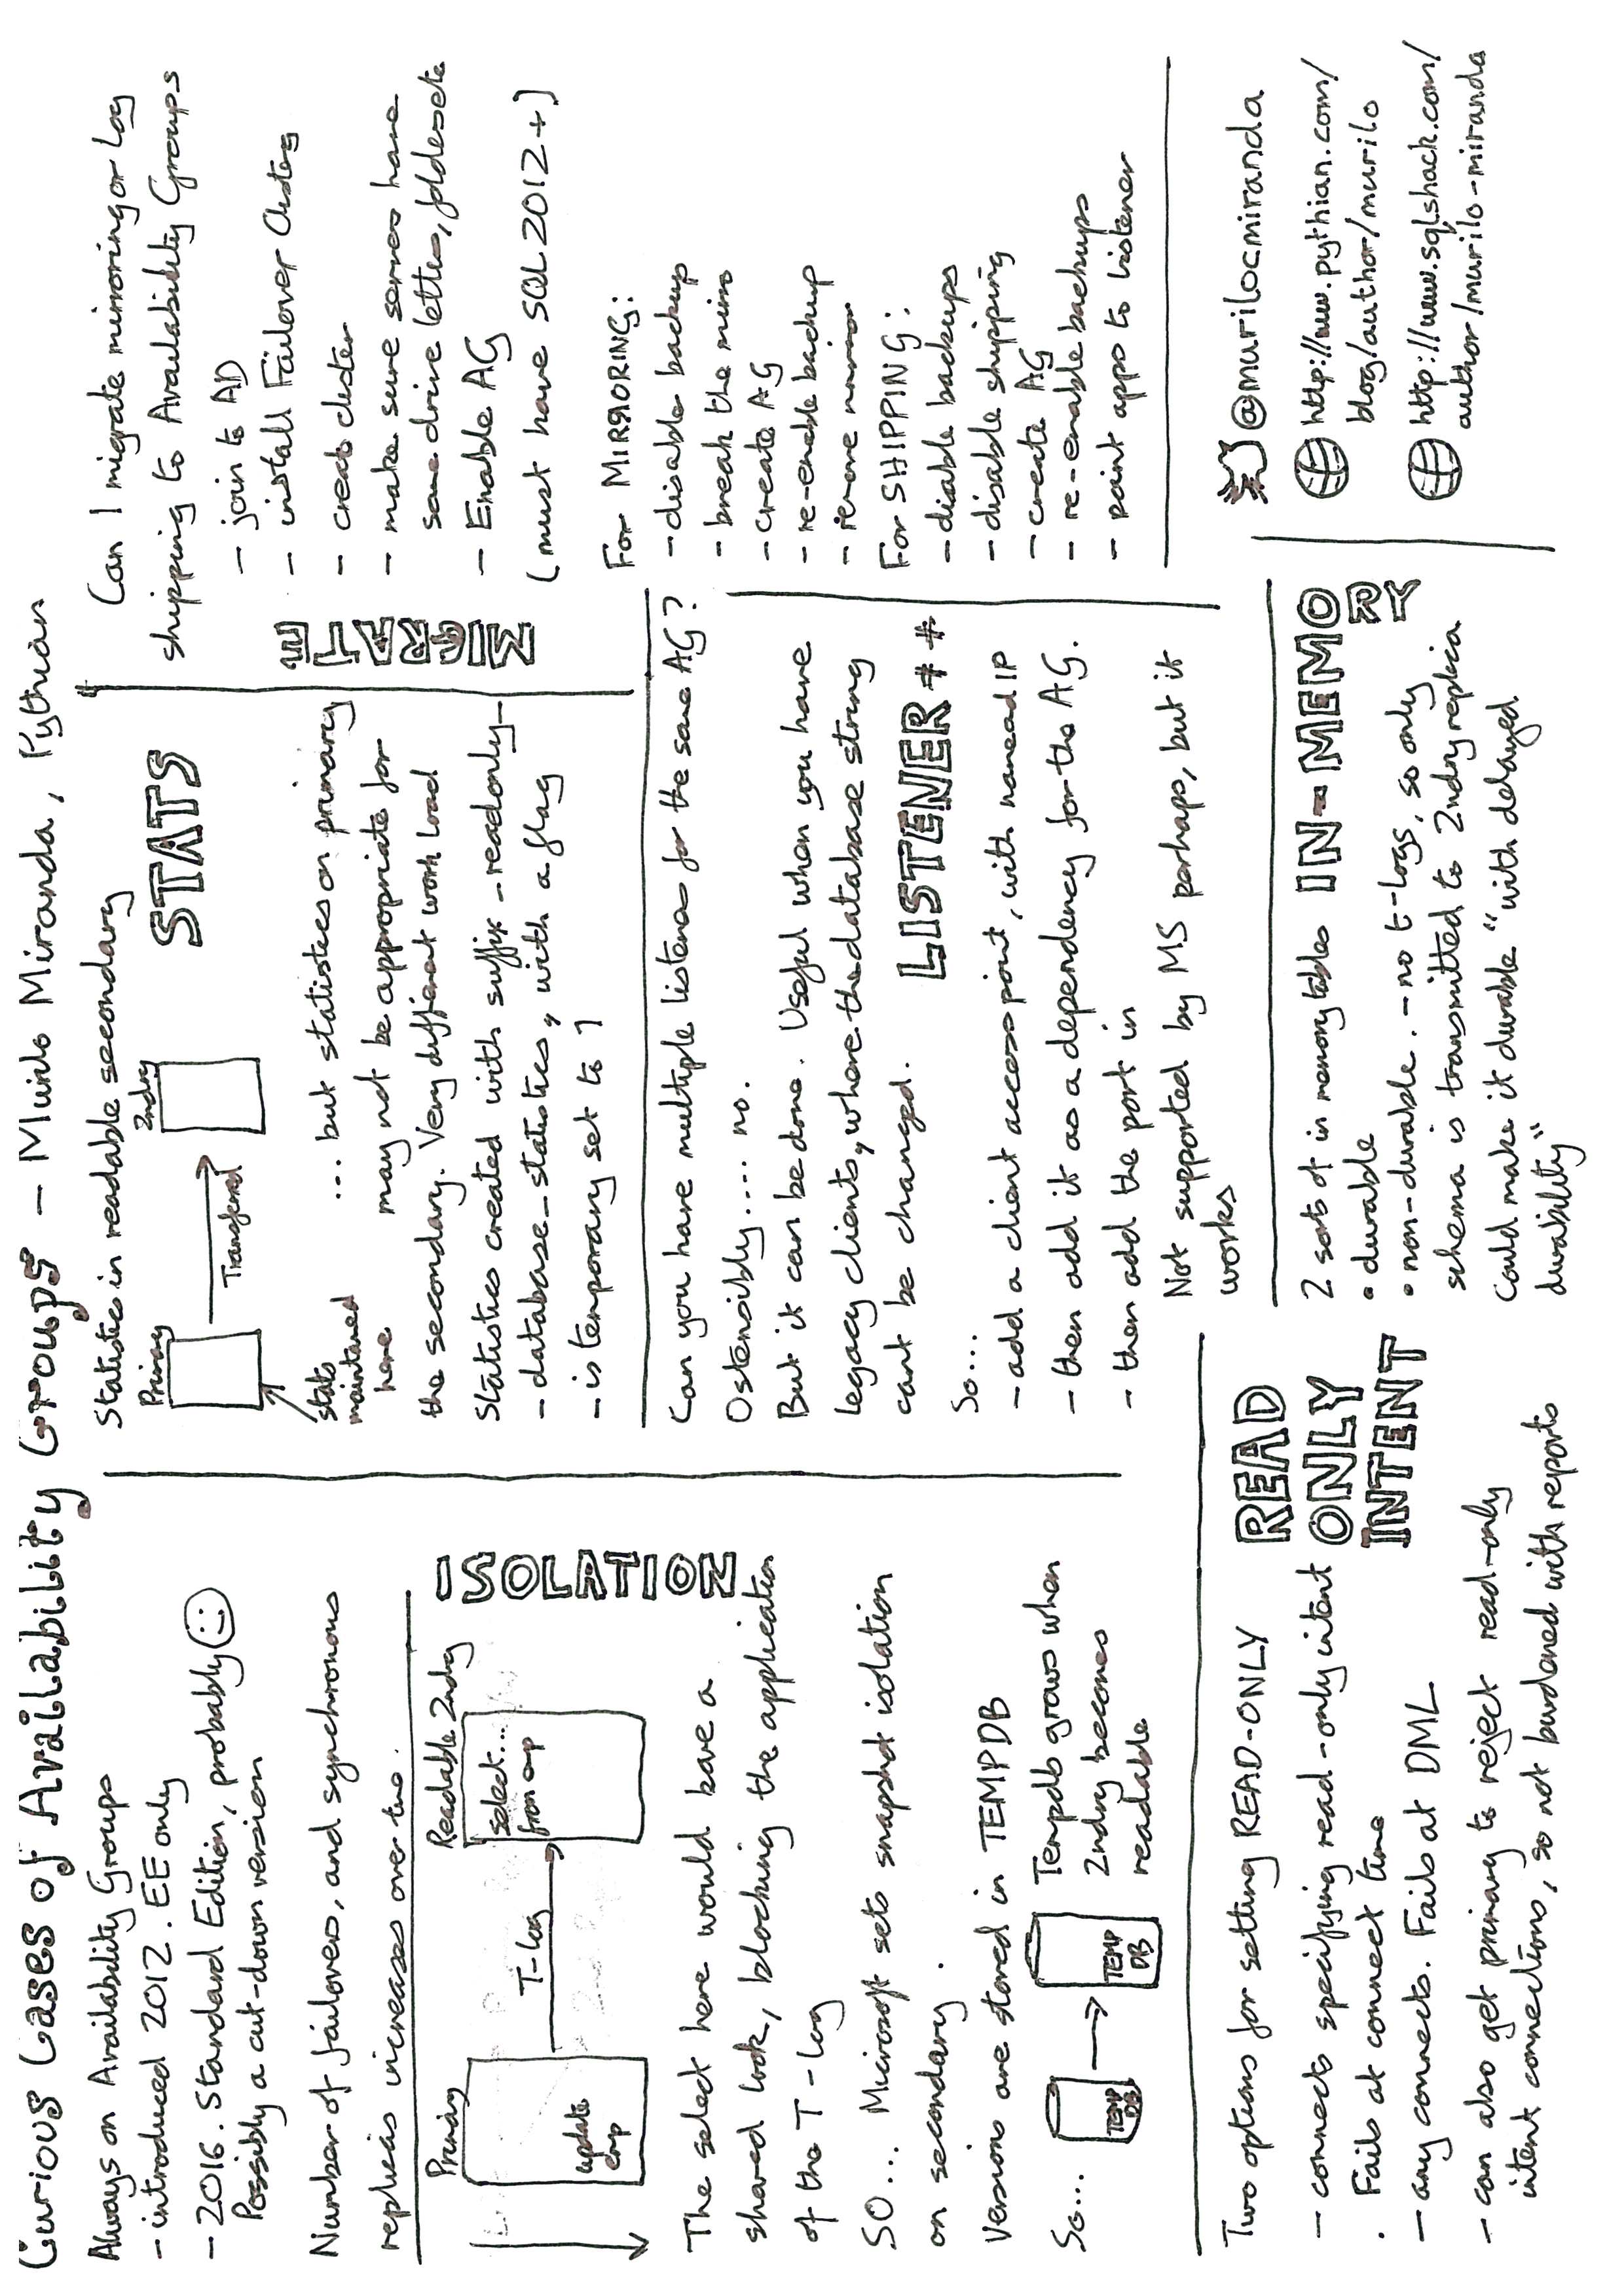 Curious Cases of Availability Groups - Murilo Miranda, Pythian
Always on Availability Groups
- introduced 2012. EE only
- 2016. Standard Edition, probably
Possibly a cut-down version
Number of failovers, and synchronous
replicas increases over time.
Primary
Readable 2ndry
select...
from emp
T-log
update
emp
ISOLATION
The select here would have a
shared lock, blocking the application
of the T-log
SO... Microsoft sets snapshot isolation
on secondary.
Versions are stored in TEMPDB
So...
TEMP
DB
TEMP
DB
Tempdb grows when
2ndry becomes
readable
Two options for setting READ-ONLY
- connects specifying read-only intent
. Fails at connect time
- any connects. Fails at DML
- can also get primary to reject read-only
intent connections, so not burdened with reports
READ
ONLY
INTENT
Statistics in readable secondary
Primary
2ndry
Transferred
STATS
stats
maintained
here
... but statistics on primary
may not be appropriate for
the secondary. Very different work load
Statistics created with suffix _readonly_
_database_statistics, with a flag
_is temporary set to 1
Can you have multiple listeners for the same AG?
Ostensibly.... no.
But it can be done. Useful when you have
legacy clients, where the database string
cant be changed.
LISTENER++
So...
- add a client access point, with name and IP
- then add it as a dependency for the AG.
- then add the port in
Not supported by MS perhaps, but it
works
2 sorts of in memory tables
IN-MEMORY
• durable
• non-durable. - no t-logs, so only
schema is transmitted to 2ndry replica
Could make it durable "with delayed
durability"
Can I migrate mirroring or log
shipping to Availability Groups
MIGRATE
- join to AD
- install Failover Clustering
- create cluster
- make sure servers have
same drive letters, folders etc
- Enable AG
(must have SQL 2012+)
For MIRRORING:
- disable backup
- break the mirror
- create AG
- re-enable backup
- remove mirror
For SHIPPING:
- diable backups
- disable shipping
- create AG
- re-enable backups
- point apps to listener
@murilocmiranda
http://www.pythian.com/
blog/author/murilo
http://www.sqlshack.com/
author/murilo-miranda